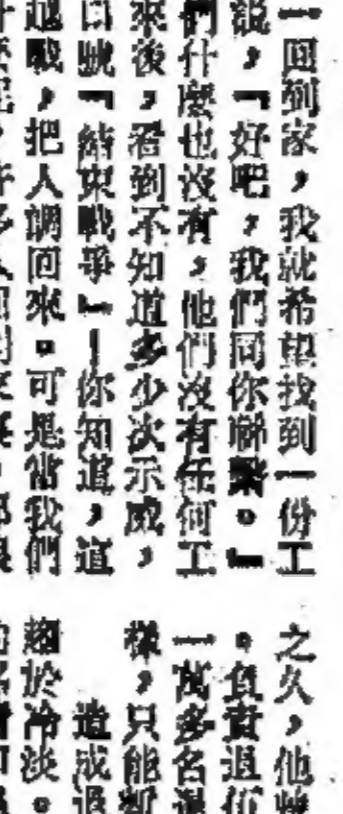 一回到家，我就希望找到一份工
說，「好吧，我們同你聯繫。」
們什麼也沒有，他們沒有任何工
來後，看到不知道多少次示威，
口號「結束戰爭」—你知道，這
越戰，把人調回來。可是當我們
之久，他
。負責退伍
一萬多名退
樣，只能
造成退
趨於冷淡。